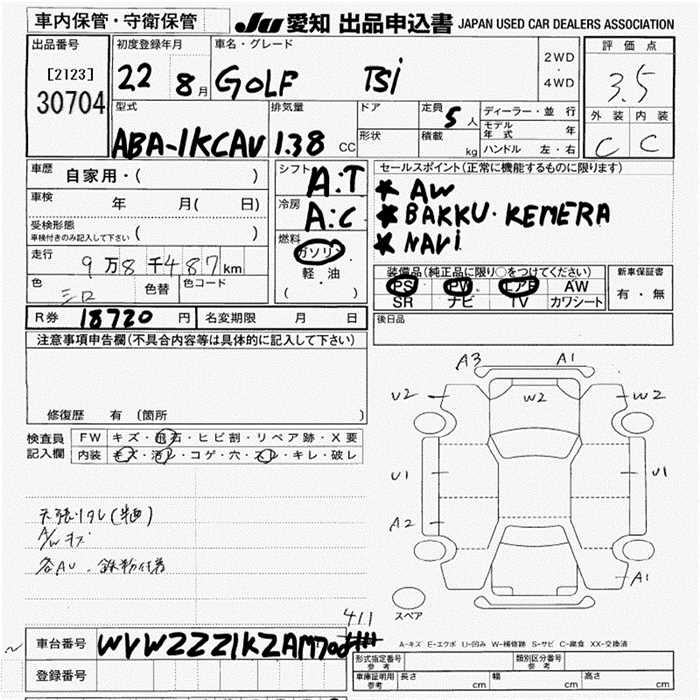 車内保管・守衛保管
JU 愛知 出品申込書 JAPAN USED CAR DEALERS ASSOCIATION
出品番号
[2123]
30704
初度登録年月
22 8月
車名・グレード
GOLF TSi
2WD
・
4WD
評価点
3.5
外装 内装
C C
型式
ABA-1KCAV
排気量
1.38 CC
ドア
形状
定員 5人
積載 kg
ディーラー・並行
モデル年式 年
ハンドル 左・右
車歴 自家用・( )
車検 年 月( 日)
受検形態
車検付きのみ記入して下さい ( )
走行 9万8千487km
色 シロ 色替 色コード
シフト
A.T
冷房
A.C
燃料
ガソリン
軽・油
( )
セールスポイント(正常に機能するものに限ります)
* AW
* BAKKU.KEMERA
* NAVi
装備品(純正品に限り○をつけてください)
PS PW エアB AW
SR ナビ TV カワシート
新車保証書
有・無
後日品
R券 18720 円 名変期限 月 日
注意事項申告欄(不具合内容等は具体的に記入して下さい)
修復歴 有 (箇所 )
検査員
記入欄
FW キズ・飛石・ヒビ割・リペア跡・X要
内装 キズ・汚レ・コゲ・穴・スレ・キレ・破レ
A3 A1
U2 W2 W2
U1 U1
A2
A1
スペア
天張りタレ(半面)
A/Wキズ
各AU・鉄粉付着
411
A-キズ E-エクボ U-凹み W-補修跡 S-サビ C-腐食 XX-交換済
車台番号
登録番号
形式指定番号
参考
類別区分番号
参考
車庫証明用
参考
長さ cm 幅 cm 高さ cm